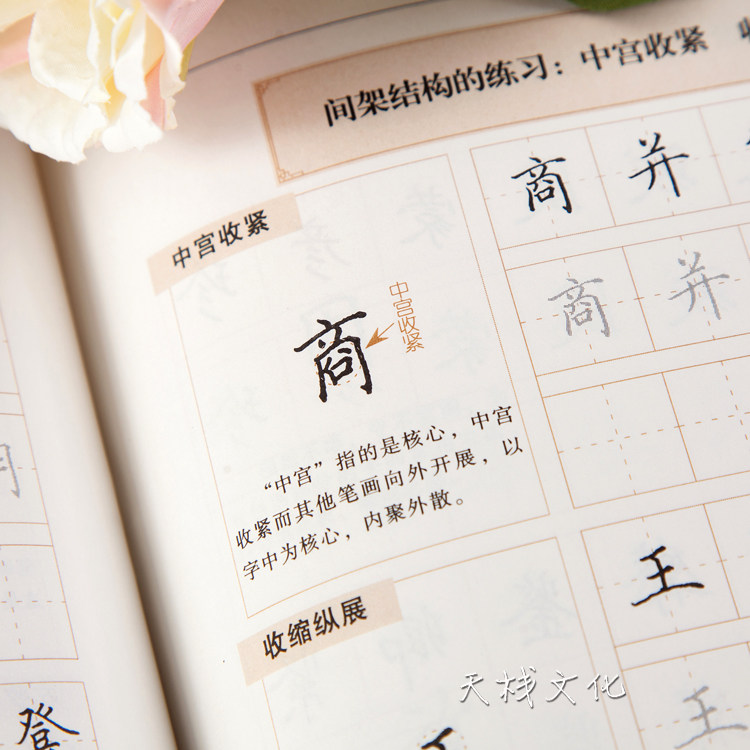 间架结构的练习：中宫收紧
中宫收紧
中宫收紧
商
“中宫”指的是核心，中宫
收紧而其他笔画向外开展，以
字中为核心，内聚外散。
收缩纵展
商 并
商 并
王
王
登
天栈文化